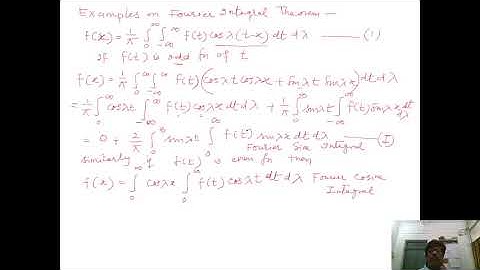 Examples on Fourier Integral Theorem —
f(x) = 1/π ∫_0^∞ ∫_{-∞}^∞ f(t) cos λ(t-x) dt dλ —— (1)
If f(t) is odd fn of t
f(x) = 1/π ∫_0^∞ ∫_{-∞}^∞ f(t) (cos λt cos λx + sin λt sin λx) dt dλ
= 1/π ∫_0^∞ cos λt ∫_{-∞}^∞ f(t) cos λx dt dλ + 1/π ∫_0^∞ sin λt ∫_{-∞}^∞ f(t) sin λx dt dλ
= 0 + 2/π ∫_0^∞ sin λt ∫_0^∞ f(t) sin λx dt dλ —— (I)
Fourier Sine Integral
Similarly if f(t) is even fn then
f(x) = ∫_0^∞ cos λx ∫_0^∞ f(t) cos λt dt dλ Fourier Cosine
Integral